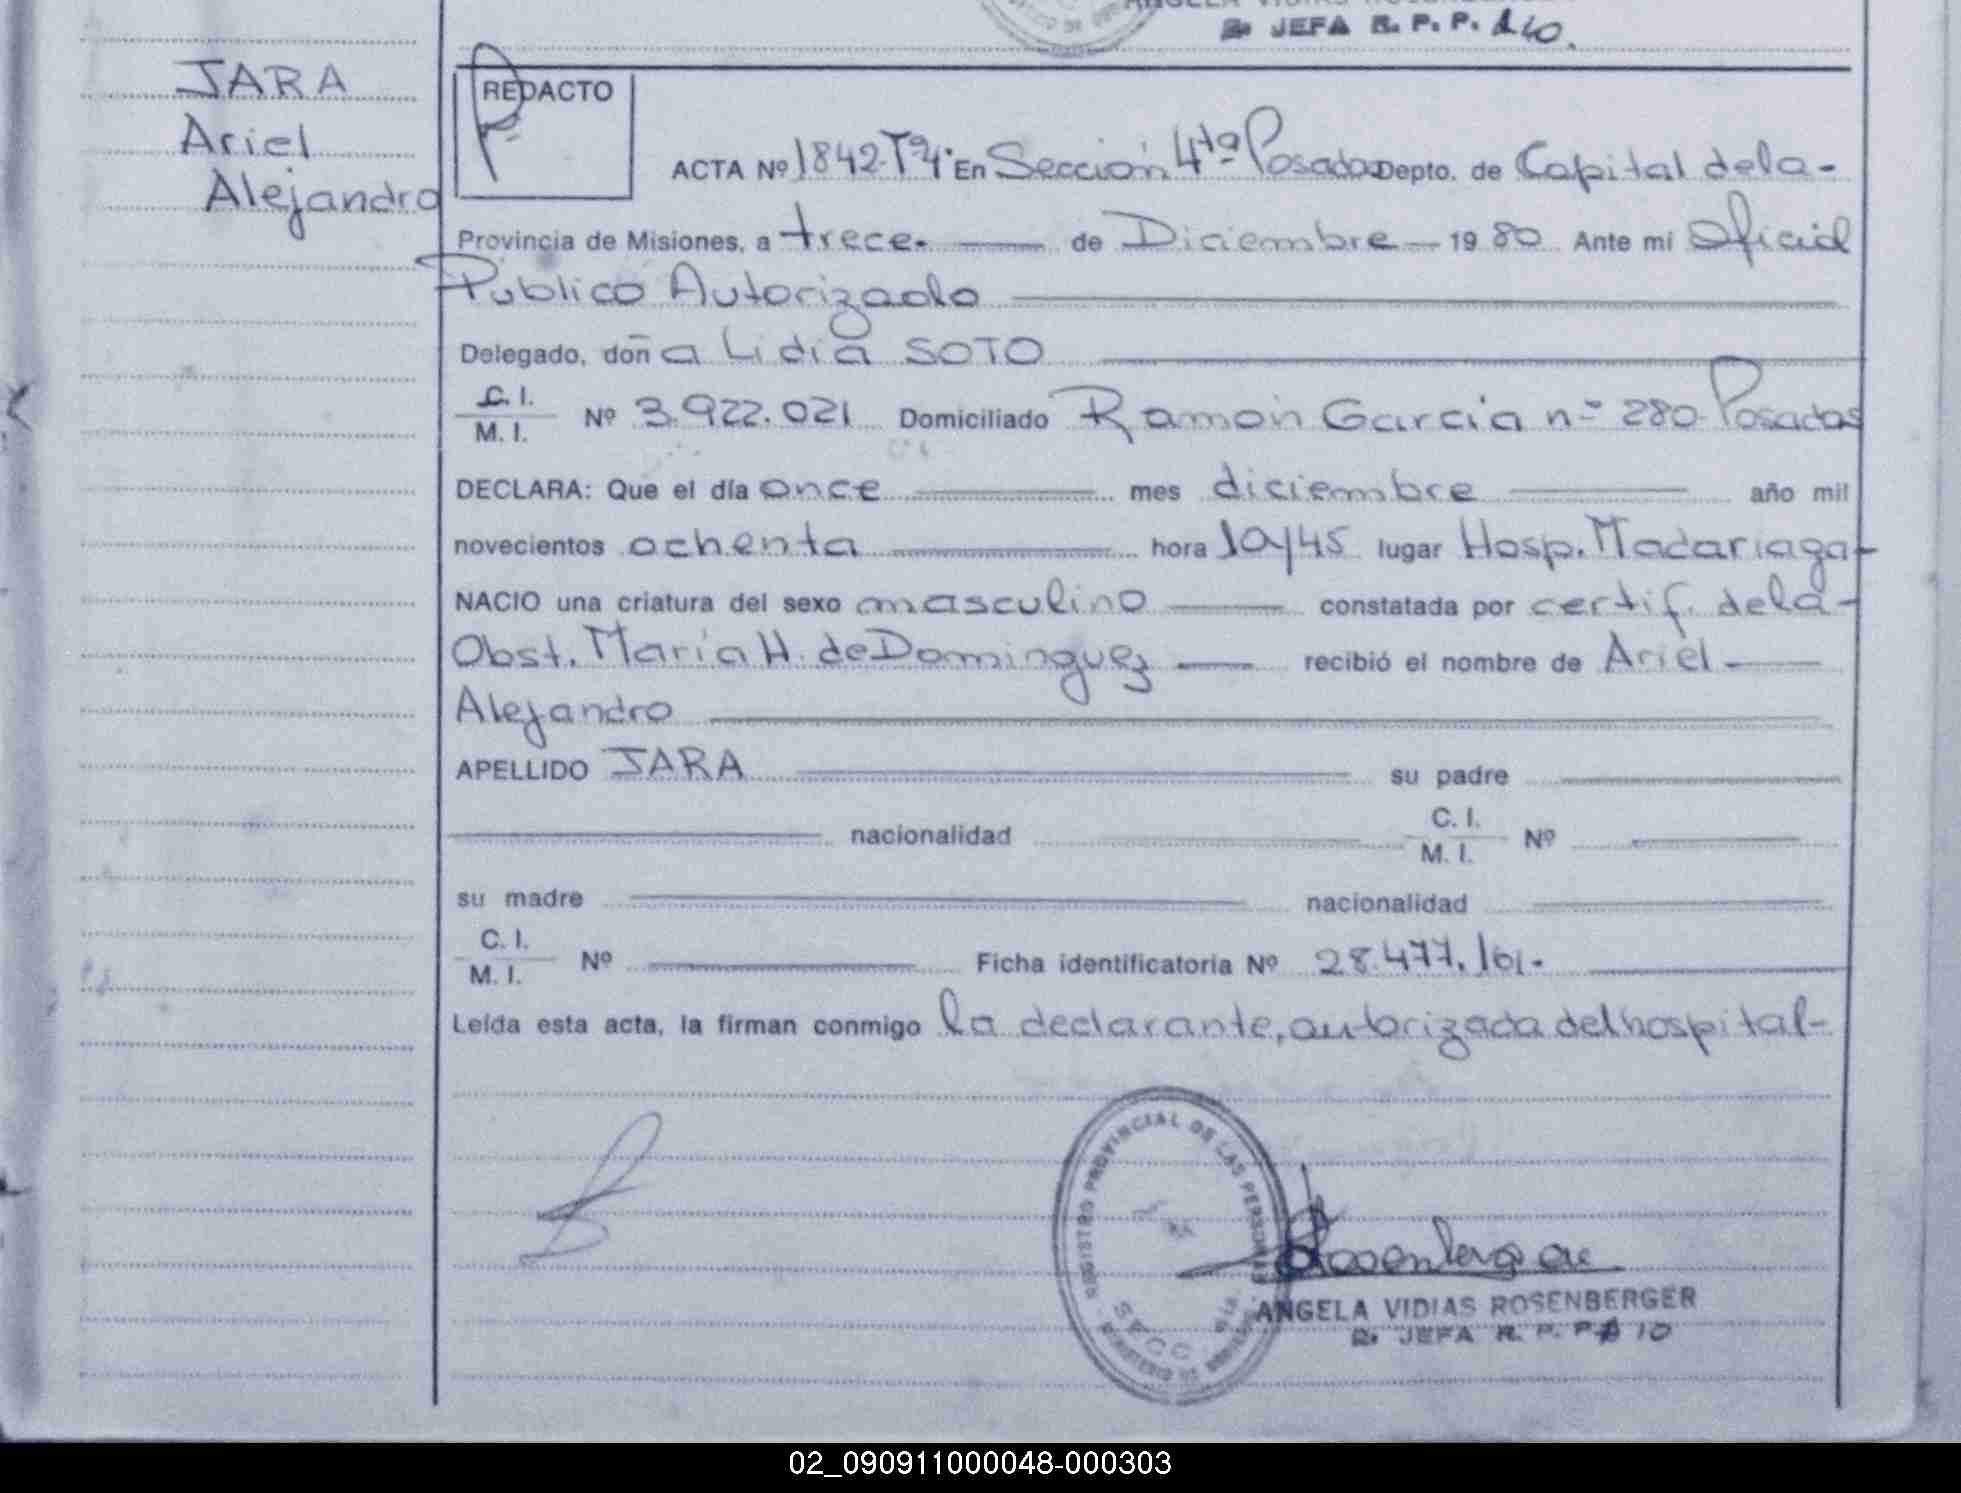 JEFA R. P. P.
JARA
Ariel
Alejandro
REDACTO
ACTA Nº 1842-Tº4· En Sección 4ta Posadas Depto. de Capital de la-
Provincia de Misiones, a trece. de Diciembre 1980 Ante mi Oficial
Público Autorizado
Delegado, doña Lidia SOTO
C. I.
M. I. Nº 3.922.021 Domiciliado Ramón García nº 280 Posadas
DECLARA: Que el día once mes diciembre año mil
novecientos ochenta hora 10y45 lugar Hosp. Madariaga-
NACIO una criatura del sexo masculino constatada por certif. de la-
Obst. María H. de Dominguez recibió el nombre de Ariel
Alejandro
APELLIDO JARA su padre
nacionalidad C. I.
M. I. Nº
su madre nacionalidad
C. I.
M. I. Nº Ficha identificatoria Nº 28.477.161.
Leída esta acta, la firman conmigo la declarante, autorizada del hospital-
REGISTRO PROVINCIAL DE LAS PERSONAS
SECC
ANGELA VIDIAS ROSENBERGER
JEFA R. P. P. 10
02_090911000048-000303